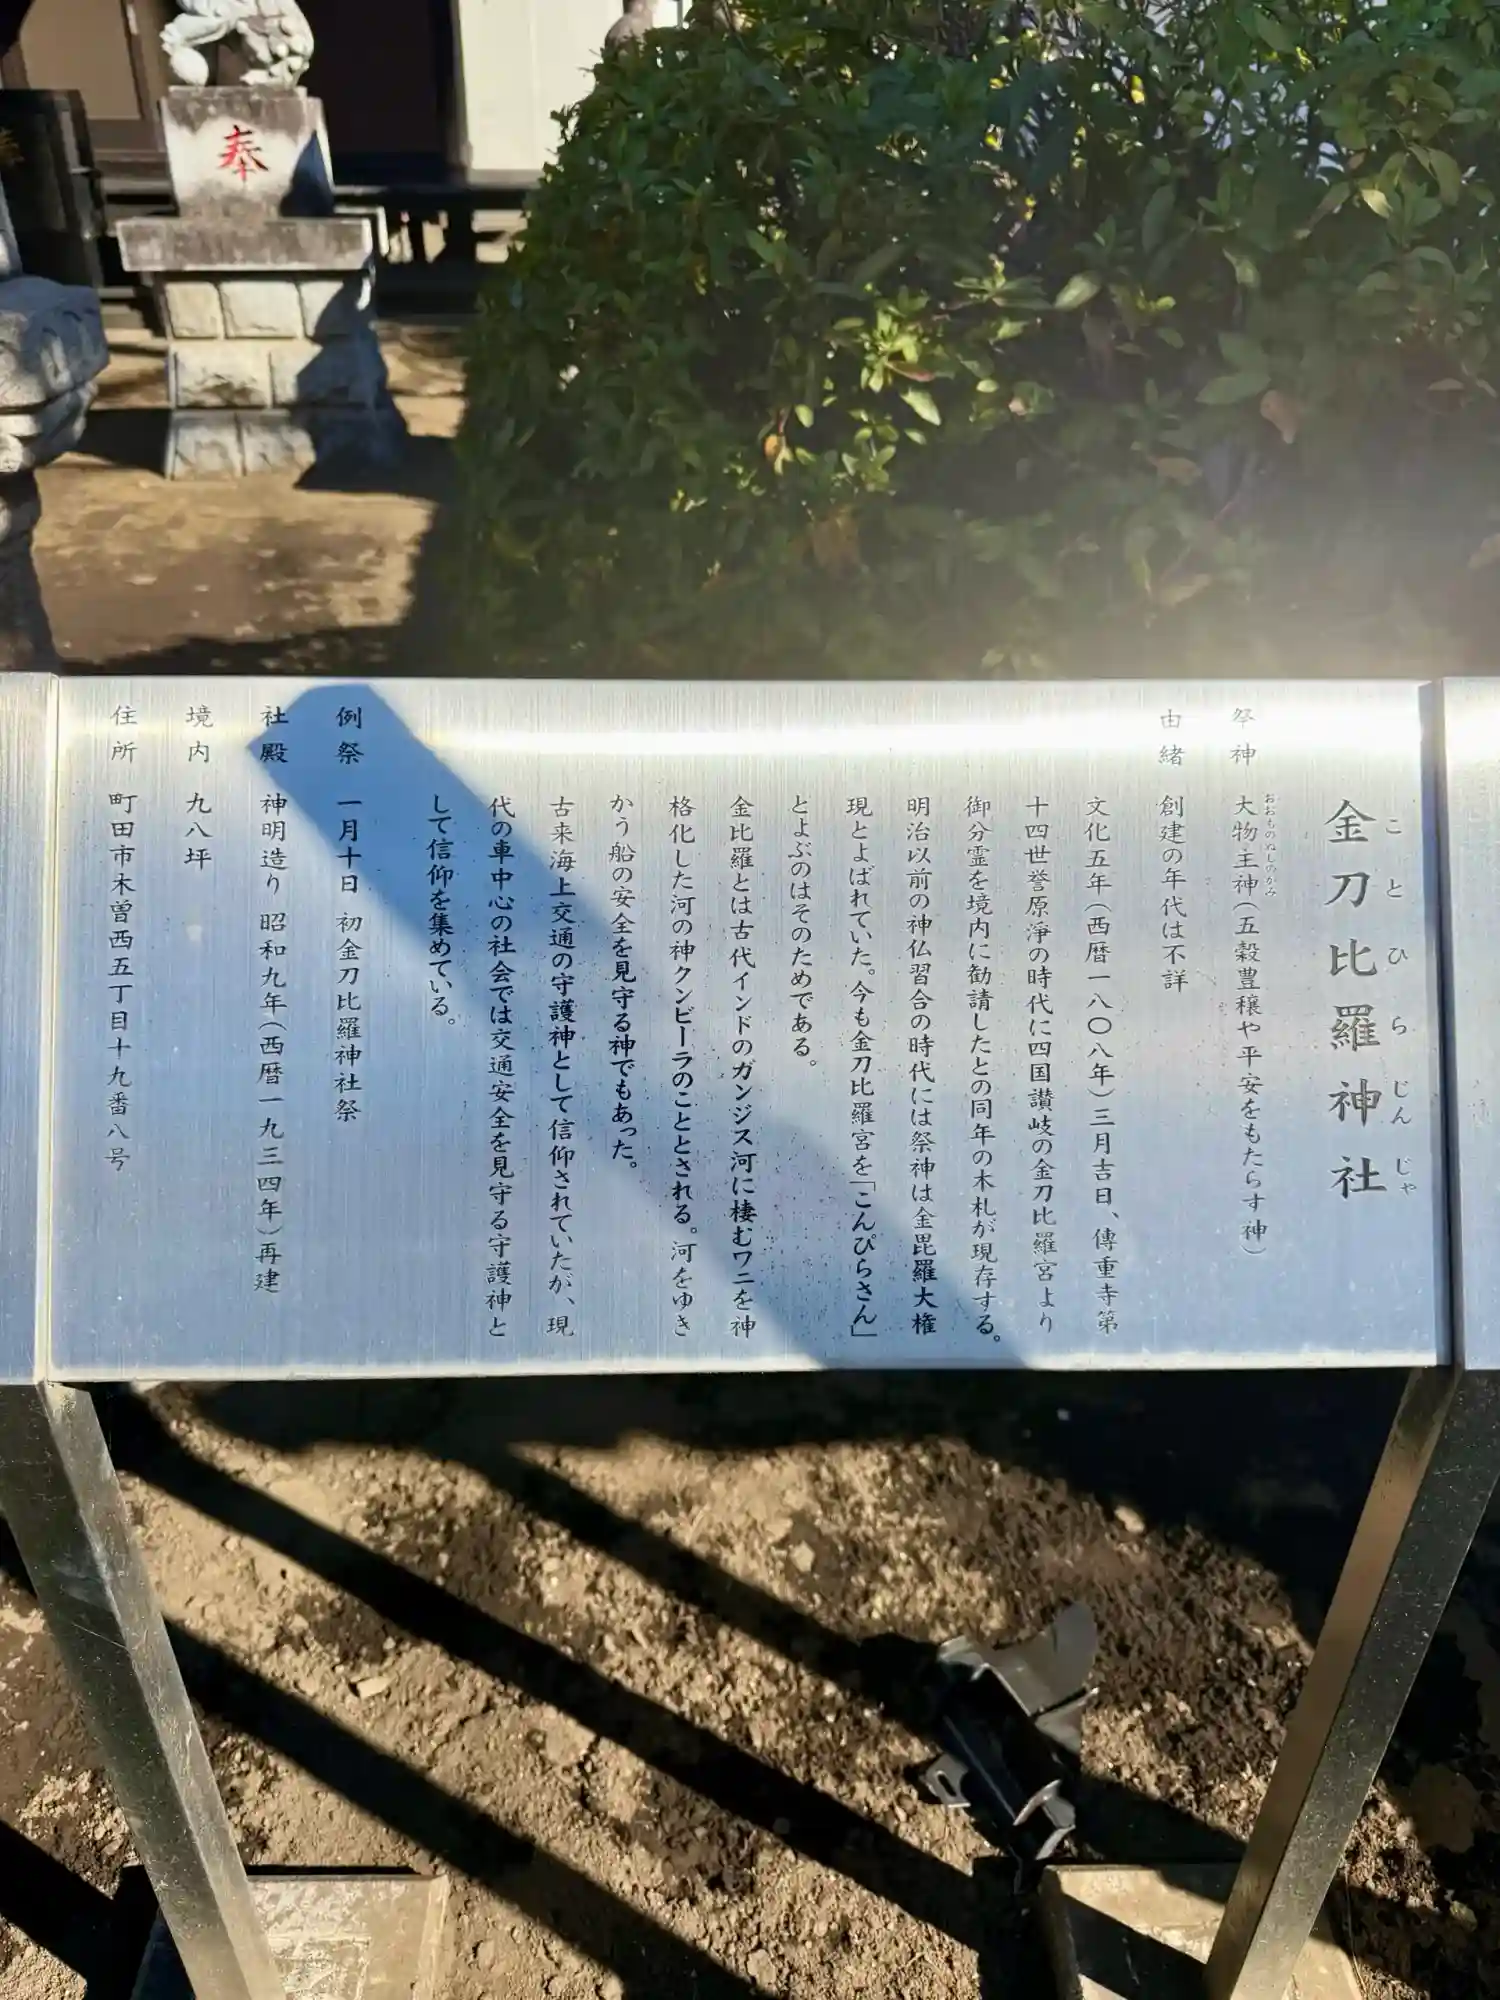 奉
金刀比羅神社
ことひらじんじゃ
祭神 大物主神(五穀豊穣や平安をもたらす神)
おおものぬしのかみ
由緒 創建の年代は不詳
文化五年(西暦一八〇八年)三月吉日、傳重寺第
十四世誉原淨の時代に四国讃岐の金刀比羅宮より
御分霊を境内に勧請したとの同年の木札が現存する。
明治以前の神仏習合の時代には祭神は金毘羅大権
現とよばれていた。今も金刀比羅宮を「こんぴらさん」
とよぶのはそのためである。
金比羅とは古代インドのガンジス河に棲むワニを神
格化した河の神クンビーラのこととされる。河をゆき
かう船の安全を見守る神でもあった。
古来海上交通の守護神として信仰されていたが、現
代の車中心の社会では交通安全を見守る守護神と
して信仰を集めている。
例祭 一月十日 初金刀比羅神社祭
社殿 神明造り 昭和九年(西暦一九三四年)再建
境内 九八坪
住所 町田市木曽西五丁目十九番八号